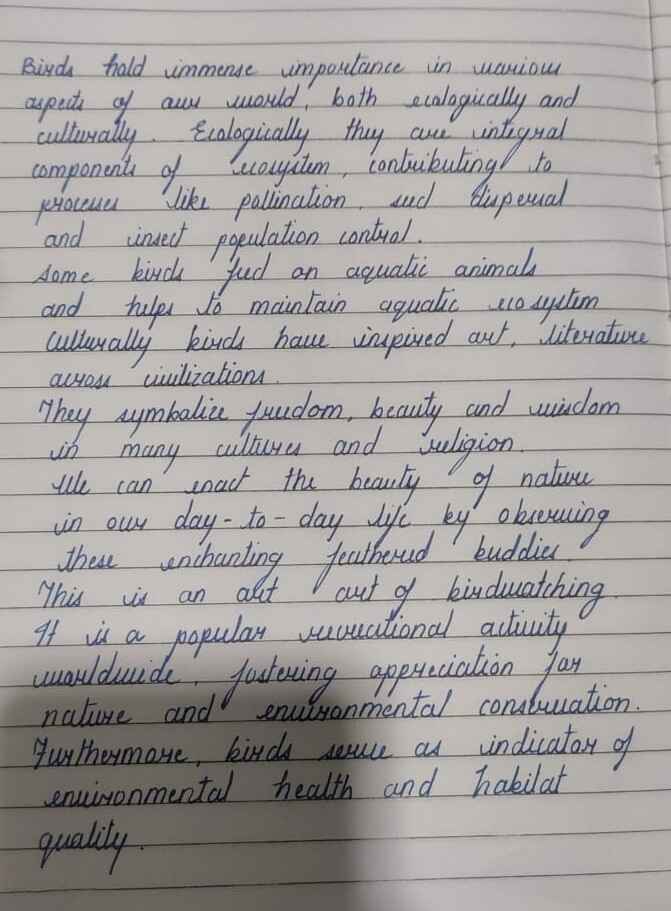 Birds hold immense importance in various
aspects of our world, both ecologically and
culturally. Ecologically they are integral
components of ecosystem, contributing to
processes like pollination, seed dispersal
and insect population control.
Some birds feed on aquatic animals
and helps to maintain aquatic ecosystem
Culturally birds have inspired art, literature
across civilizations.
They symbolize freedom, beauty and wisdom
in many cultures and religion.
We can enact the beauty of nature
in our day-to-day life by observing
these enchanting feathered buddies.
This is an art art of birdwatching.
It is a popular recreational activity
worldwide, fostering appreciation for
nature and environmental conservation.
Furthermore, birds serve as indicator of
environmental health and habitat
quality.